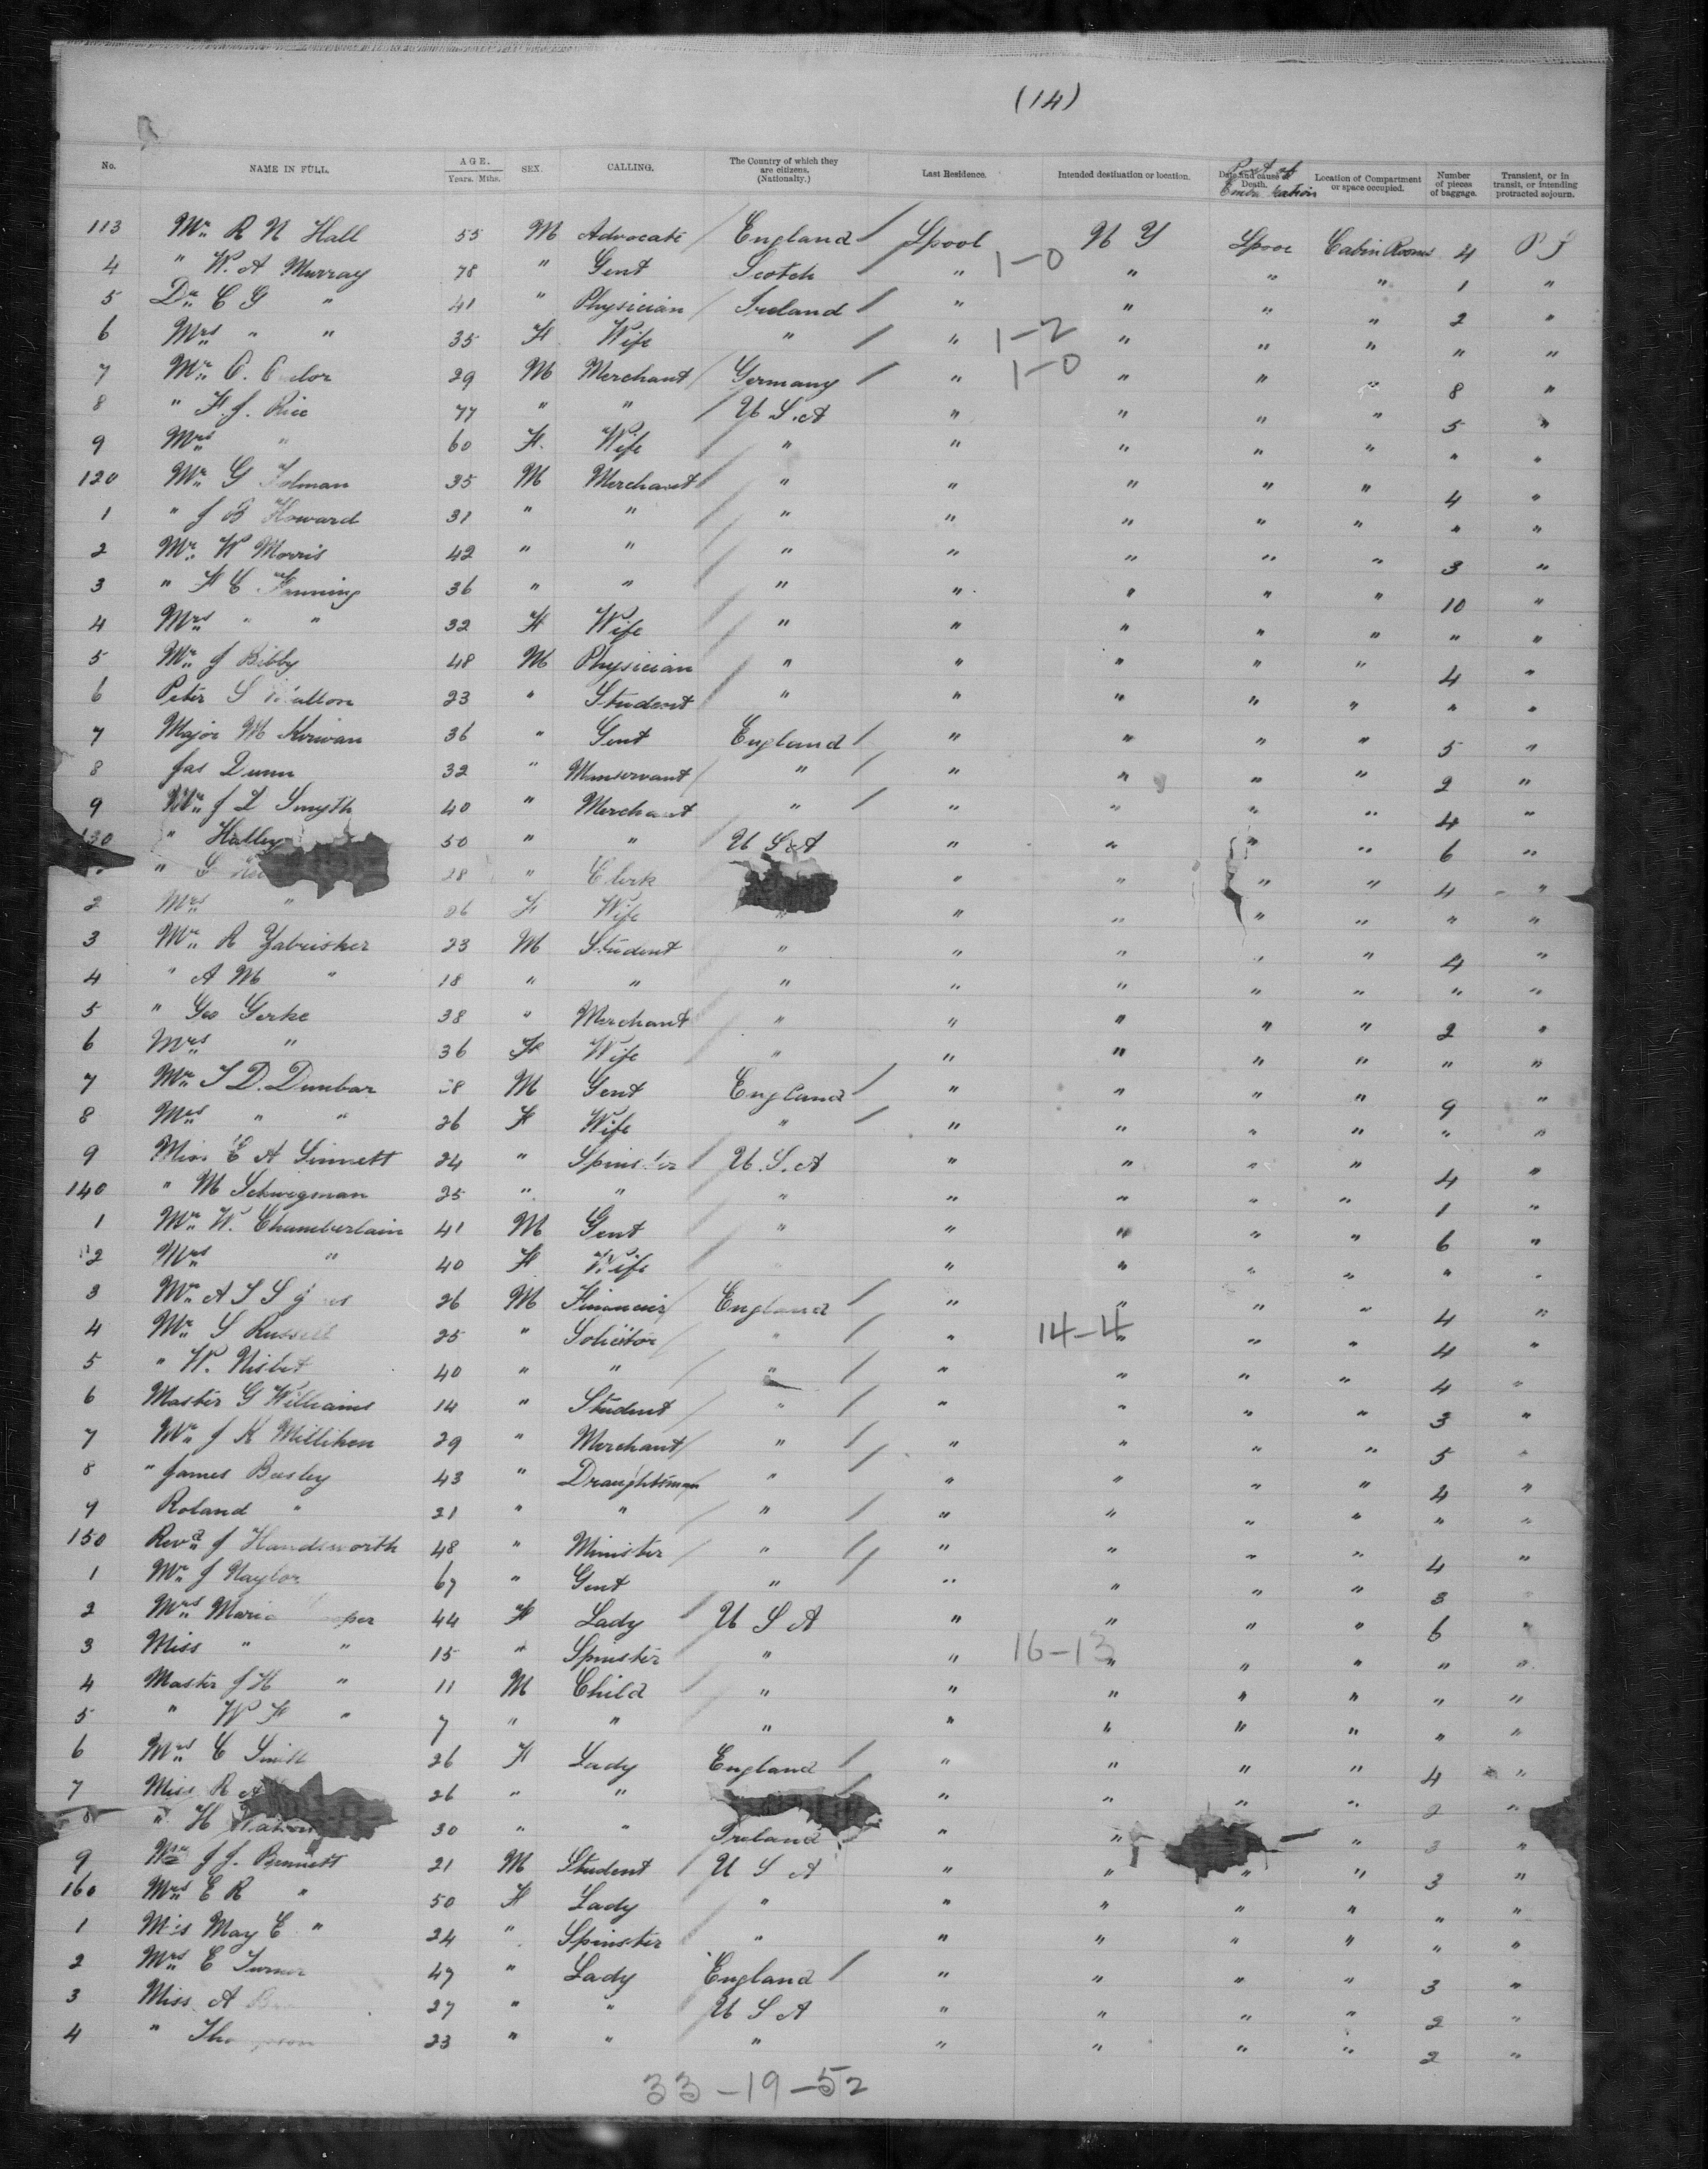 (14)
No. NAME IN FULL. AGE. Years. Mths. SEX. CALLING. The Country of which they are citizens. (Nationalty.) Last Residence. Intended destination or location. Date and cause of Death. Port of Embarkation Location of Compartment or space occupied. Number of pieces of baggage. Transient, or in transit, or intending protracted sojourn.
113 Mr R N Hall 55 M Advocate / England / Lpool N Y Lpool Cabin Rooms 4 P S
4 " W. A Murray 78 " Gent Scotch / " 1-0 " " " 1 "
5 Dr C G " 41 " Physician / Ireland / " " " " 2 "
6 Mrs " " 35 F Wife " / " 1-2 " " " " "
7 Mr O. 29 M Merchant / Germany / " 1-0 " " " 8 "
8 " F. J. Rice 77 " " / U.S.A " " " " 5 "
9 Mrs " 60 F. Wife / " " " " " " "
120 Mr G Tolman 35 M Merchant / " " " " " 4 "
1 " J B Howard 31 " " / " " " " " " "
2 Mr W Morris 42 " " / " " " " " 3 "
3 " F C Fanning 36 " " / " " " " " 10 "
4 Mrs " " 32 F Wife / " " " " " " "
5 Mr J Bibby 48 M Physician / " " " " " 4 "
6 Peter S Walton 23 " Student / " " " " " " "
7 Major M Kirwan 36 " Gent England / " " " " 5 "
8 Jas Dunn 32 " Manservant / " / " " " " 2 "
9 Mr J L Smyth 40 " Merchant " / " " " " 4 "
130 " Halley 50 " " U S A " " " " 6 "
" G 28 " Clerk " " " " 4 "
2 Mrs " 26 F Wife " " " " " " "
3 Mr R Zabrisker 23 M Student / " " " " " 4 "
4 " A M " 18 " " / " " " " " " "
5 " Geo Gerke 38 " Merchant / " " " " " 2 "
6 Mrs " 36 F Wife / " " " " " " "
7 Mr T D. Dunbar 38 M Gent England / " " " " 9 "
8 Mrs " " 26 F Wife " / " " " " " "
9 Miss E A Sinnett 24 " Spinster / U.S.A " " " " 4 "
140 " M Schwegman 25 " " / " " " " " 1 "
1 Mr W. Chamberlain 41 M Gent / " " " " " 6 "
2 Mrs " 40 F Wife / " " " " " " "
3 Mr A S S 26 M Financier / England / " " " " 4 "
4 Mr S Russell 25 " Solicitor / " / " 14-4 " " " 4 "
5 " W. Nisbet 40 " " / " / " " " " 4 "
6 Master G Williams 14 " Student / " / " " " " 3 "
7 Mr J K Milliken 29 " Merchant / " / " " " " 5 "
8 " James Beesley 43 " Draughtsman / " / " " " " 4 "
9 Roland " 21 " " " / " " " " " "
150 Revd J Handsworth 48 " Minister / " / " " " " 4 "
1 Mr J Naylor 67 " Gent " / " " " " 3 "
2 Mrs Maria 44 F Lady / U S A " " " " 6 "
3 Miss " " 15 " Spinster / " " 16-13 " " " " "
4 Master J H " 11 M Child / " " " " " " "
5 " W F " 7 " " " " " " " " "
6 Mrs C Smith 26 F Lady England / " " " " 4 "
7 Miss R A 26 " " / " " " " 2 "
8 " H Watson 30 " " Ireland / " " " 3 "
9 Mr J J. Bennett 21 M Student / U S A " " " " 3 "
160 Mrs E R " 50 F Lady / " " " " " " "
1 Miss May E " 24 " Spinster / " " " " " " "
2 Mrs E Turner 47 " Lady England / " " " " 3 "
3 Miss A 27 " " U S A " " " " 2 "
4 " Thompson 23 " " " " " " " 2 "
33-19-52